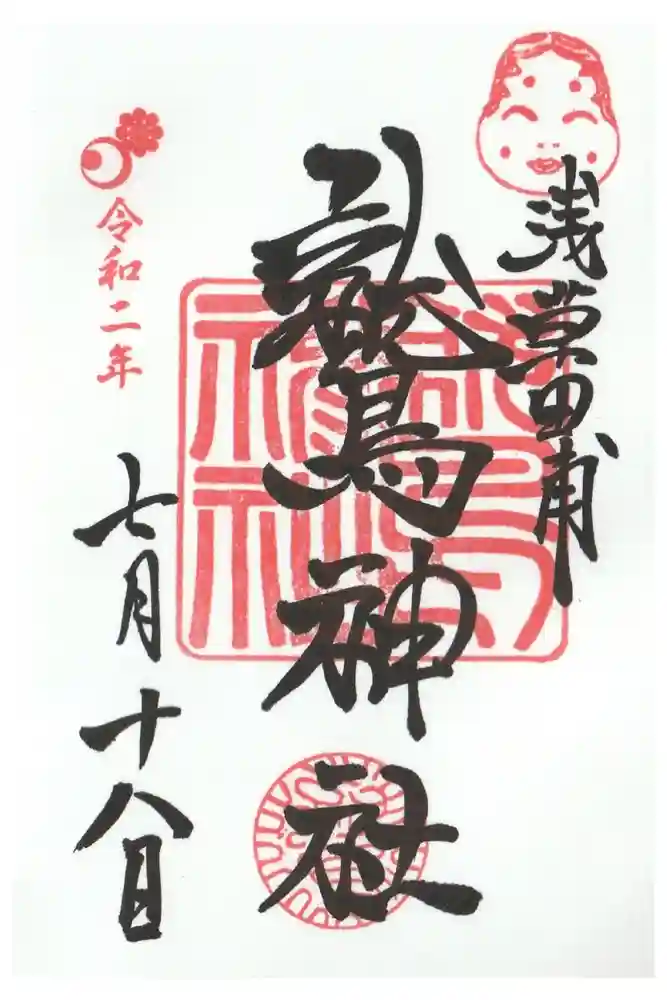 浅草田甫
鷲神社
令和二年
七月十八日